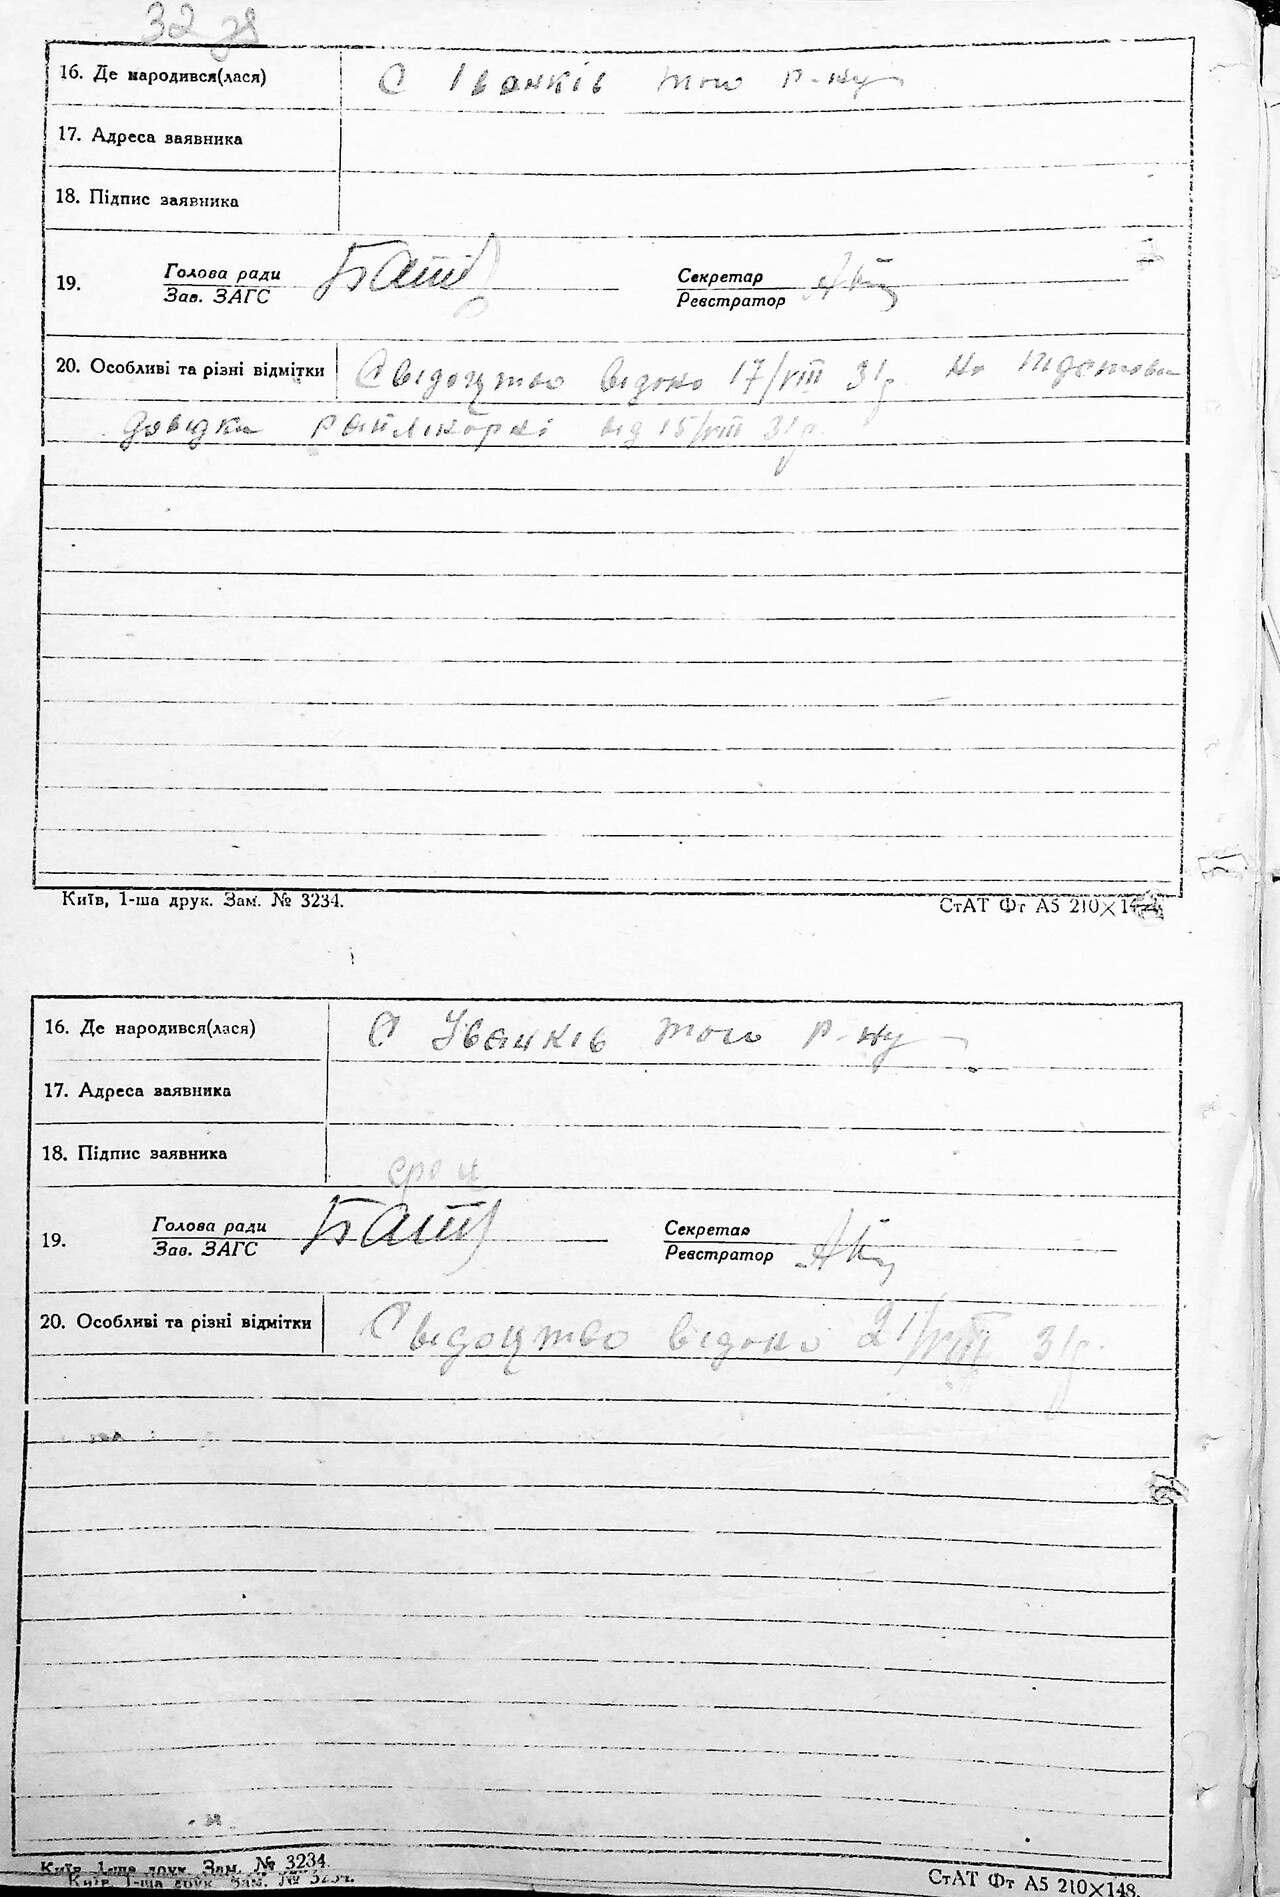 32 зв
16. Де народився(лася) С Іванків того р-ну
17. Адреса заявника
18. Підпис заявника
19. Голова ради Секретар
Зав. ЗАГС Реєстратор
20. Особливі та різні відмітки Свідоцтво видано 17/VIII 31р. на підставі
довідки райлікарні від 15/VIII 31р.
Київ, 1-ша друк. Зам. № 3234. СтАТ Фт А5 210×148.
16. Де народився(лася) С Уванків того р-ну
17. Адреса заявника
18. Підпис заявника
19. Голова ради Секретар
Зав. ЗАГС Реєстратор
20. Особливі та різні відмітки Свідоцтво видано 21/VIII 31р.
Київ 1-ша друк. Зам. № 3234. СтАТ Фт А5 210×148.
Київ, 1-ша друк. Зам. № 3234.